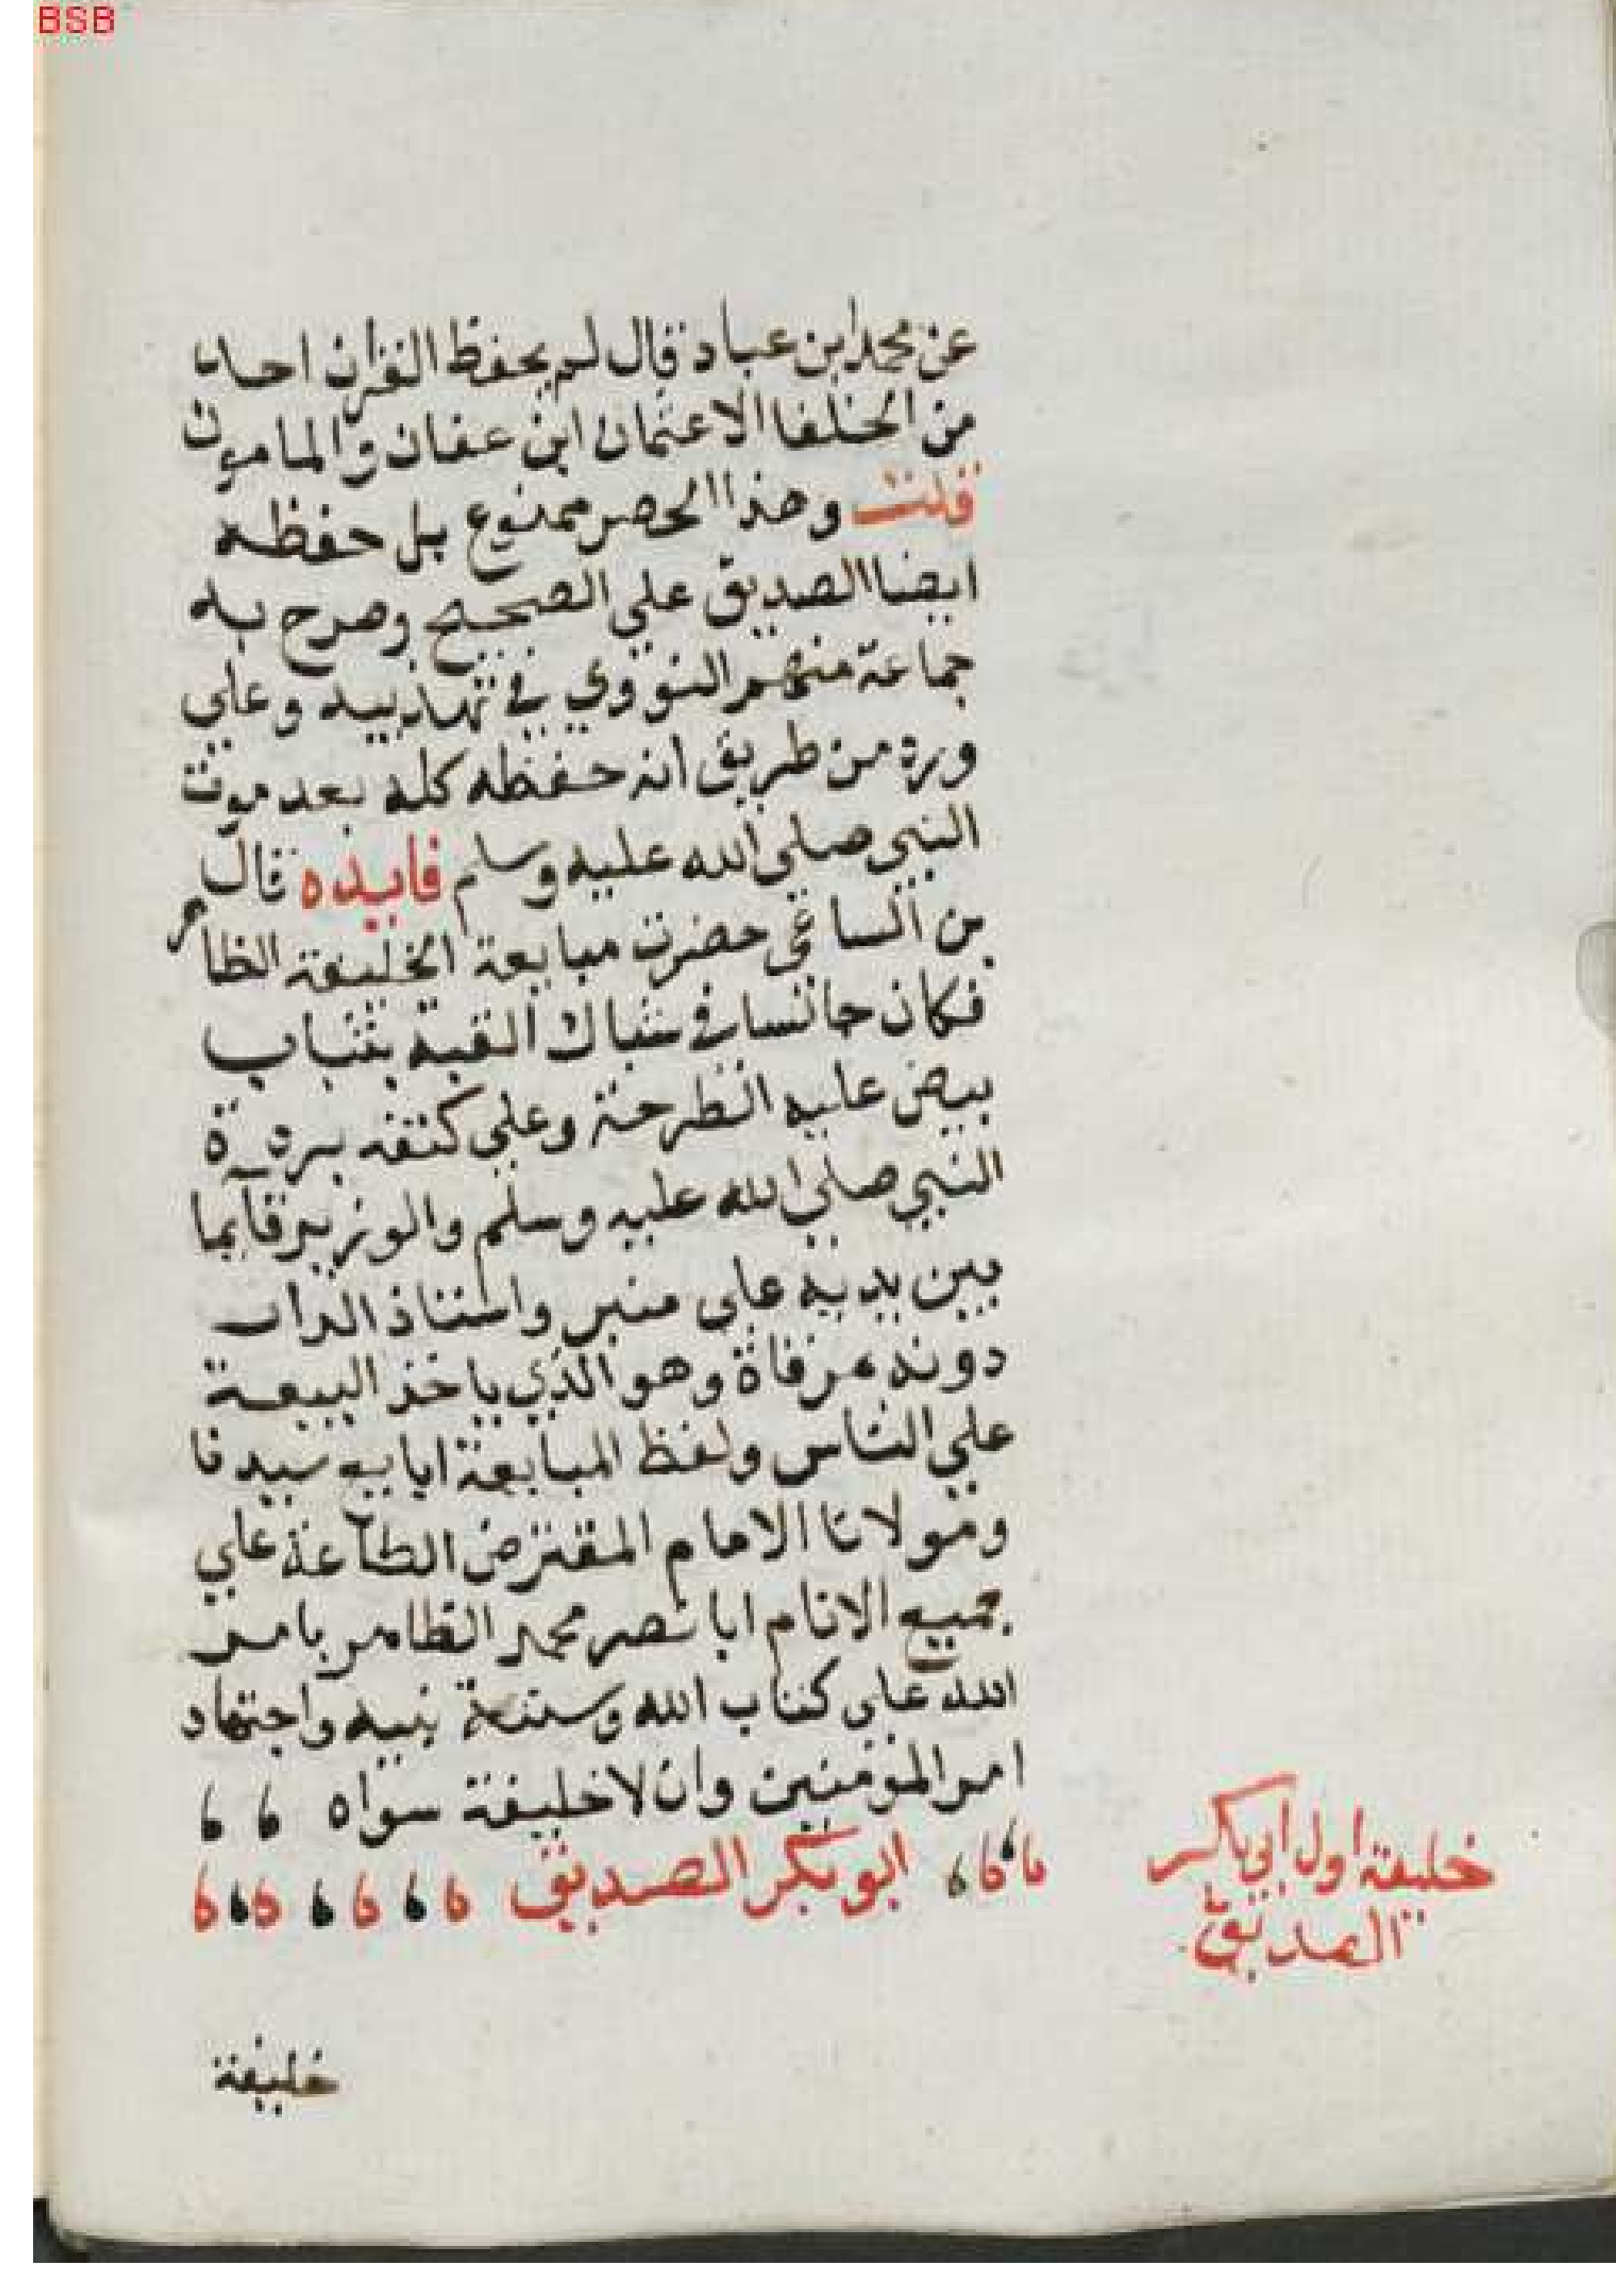 BSB
عن محمد ابن عباد قال لم يحفظ القران احد
من الخلفا الا عثمان ابن عفان والمامون
قلت وهذا الحصر ممنوع بل حفظه
ايضا الصديق علي الصحيح وصرح به
جماعة منهم النووي في تهذيبه وعلي
ورد من طريق انه حفظه كله بعد موت
النبي صلي الله عليه وسلم فايده قال
بن الساعي حضرت مبايعة الخليفة الظاهر
فكان جالسا في شباك القبة بثياب
بيض عليه الطرحة وعلي كتفه بردة
النبي صلي الله عليه وسلم والوزير قايما
بين يديه علي منبر واستاذ الدار
دونه مرقاة وهو الذي ياخذ البيعة
علي الناس ولفظ المبايعة ابايع سيدنا
ومولانا الامام المفترض الطاعة علي
جميع الانام ابا نصر محمد الظاهر بامر
الله علي كتاب الله وسنة نبيه واجتهاد
امر المؤمنين وان لا خليفة سواه
ابو بكر الصديق
خليفة اول ابي بكر
الصديق
خليفة